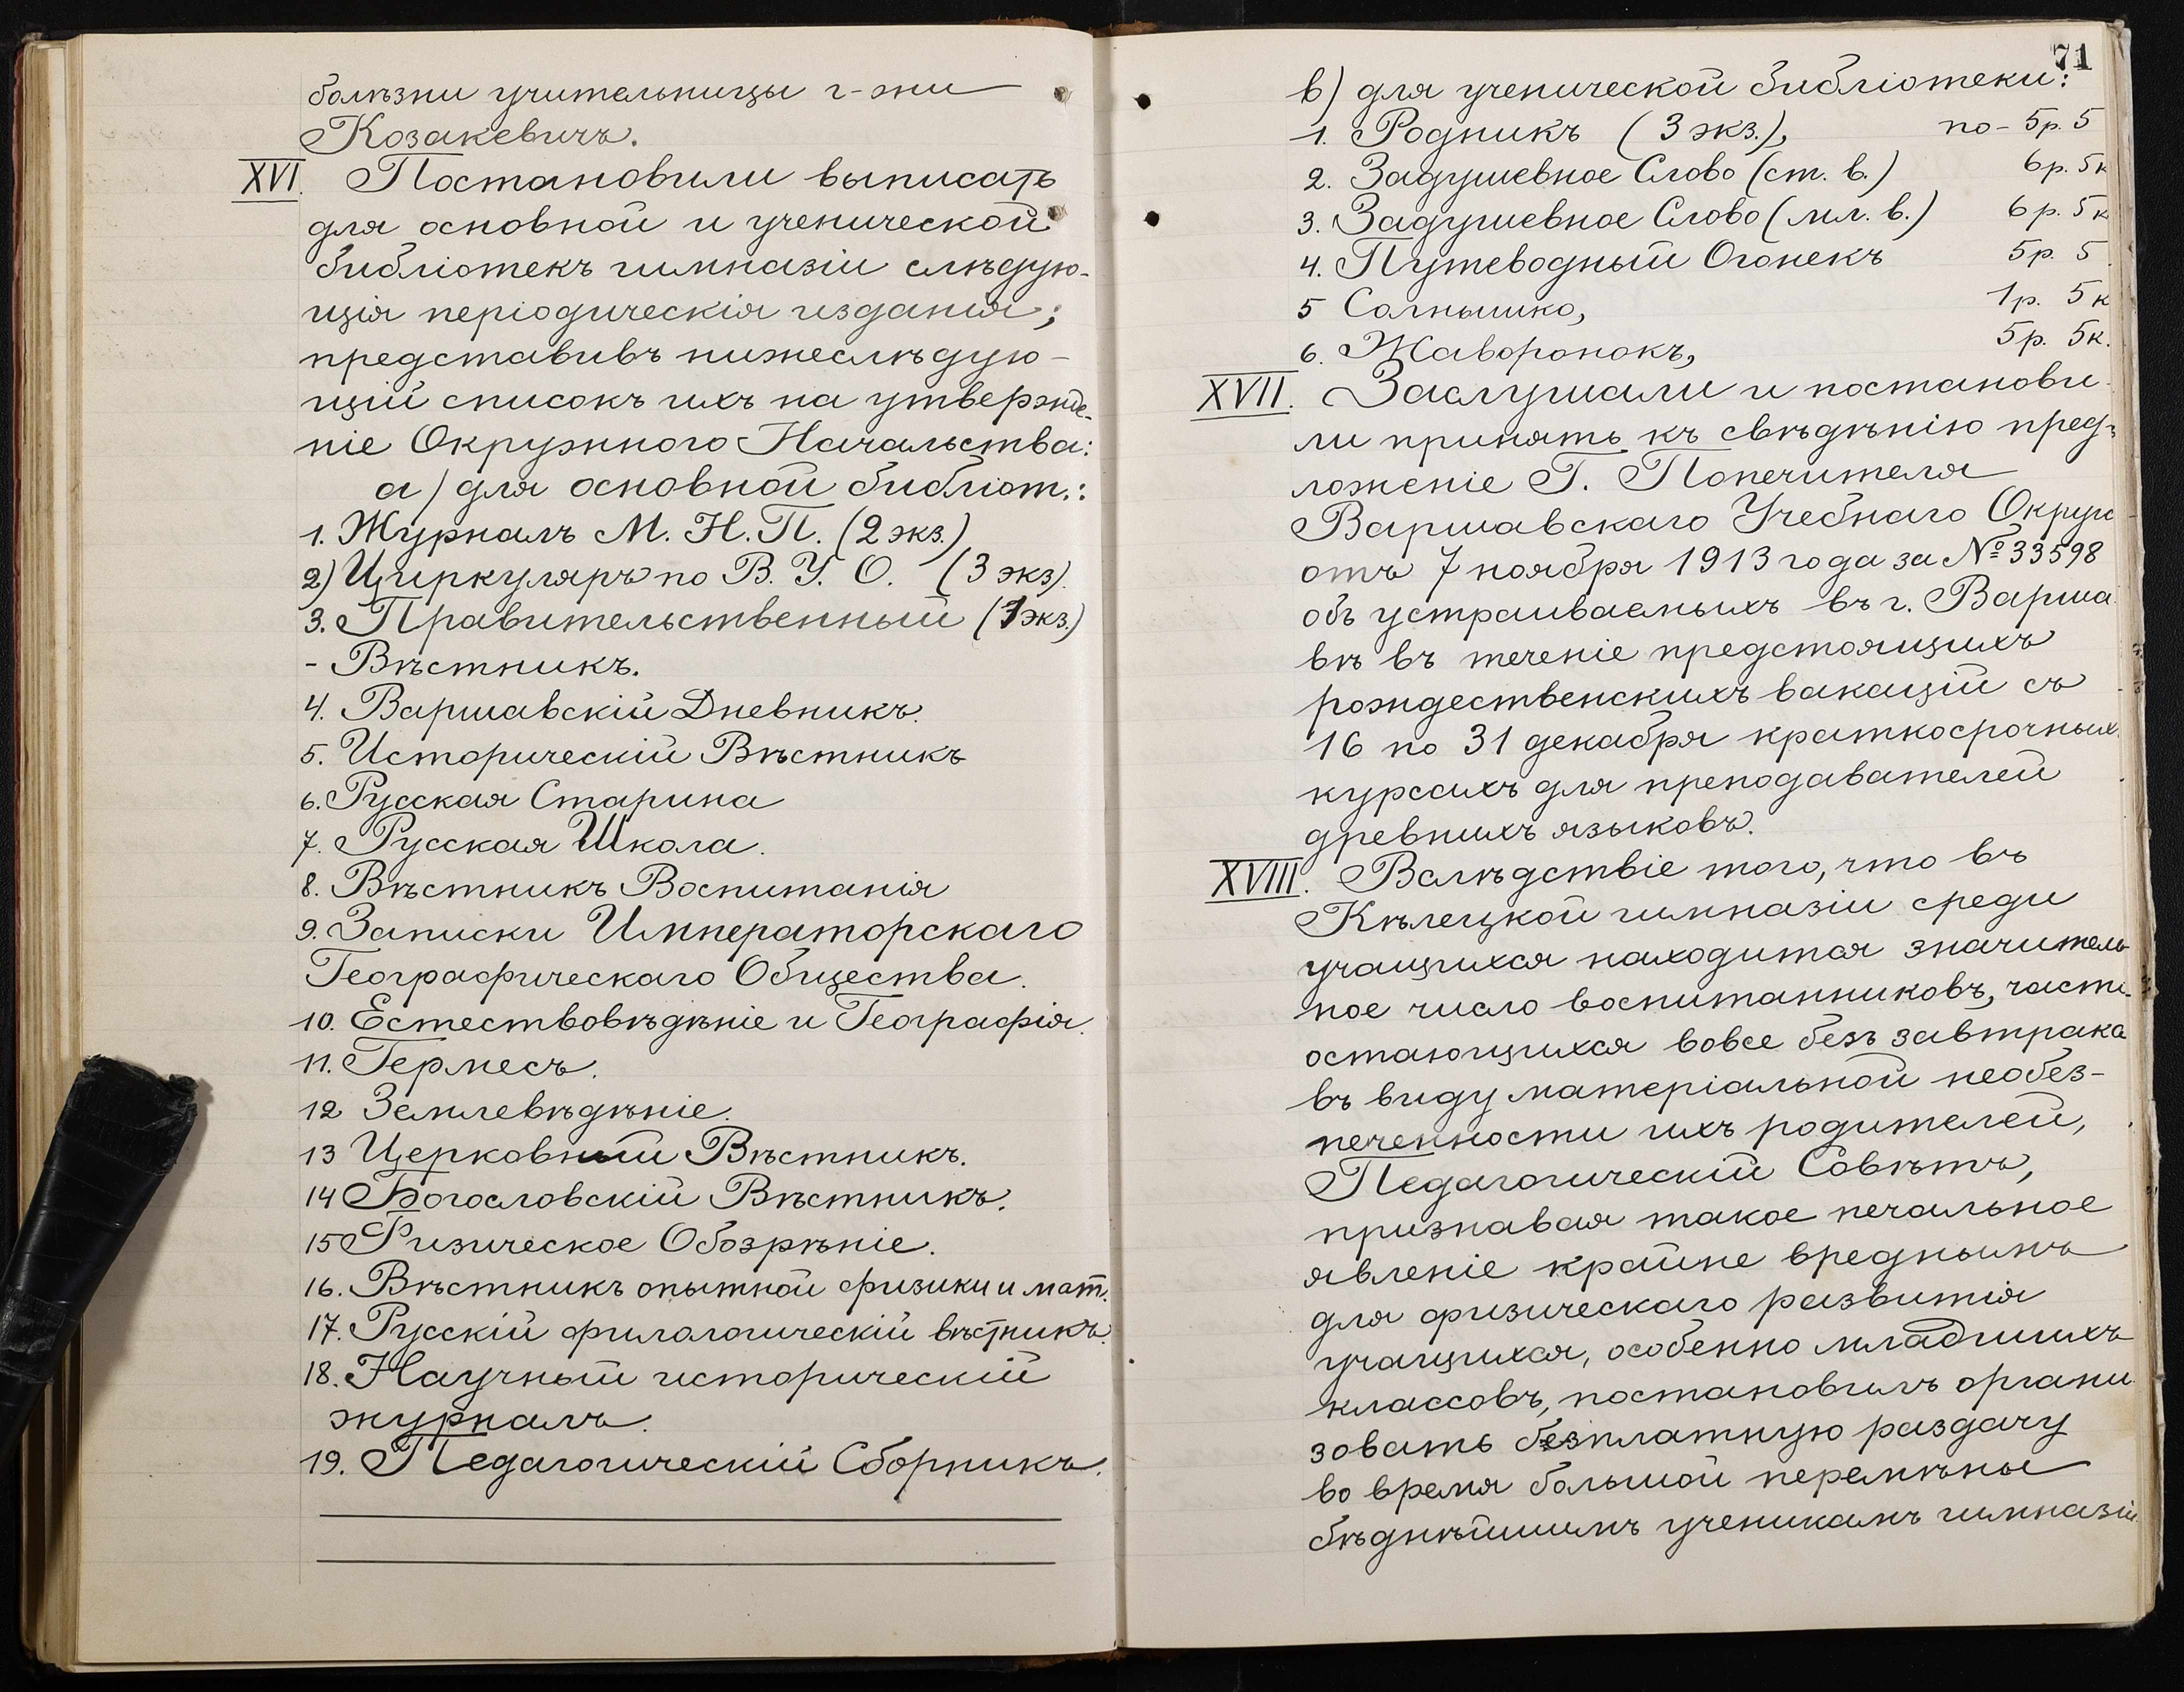 болѣзни учительницы г-жи
Козакевичъ.
XVI. Постановили выписать
для основной и ученической
библіотекъ гимназіи слѣдую-
щія періодическія изданія;
представивъ нижеслѣдую-
щій списокъ ихъ на утвержде-
ніе Окружного Начальства:
а) для основной библіот.:
1. Журналъ М. Н. П. (2 экз.)
2) Циркуляръ по В. У. О. (3 экз).
3. Правительственный (1 экз.)
- Вѣстникъ.
4. Варшавскій Дневникъ.
5. Историческій Вѣстникъ
6. Русская Старина
7. Русская Школа.
8. Вѣстникъ Воспитанія
9. Записки Императорскаго
Географическаго Общества.
10. Естествовѣдѣніе и Географія.
11. Гермесъ.
12 Землевѣдѣніе.
13 Церковный Вѣстникъ.
14 Богословскій Вѣстникъ.
15 Физическое Обозрѣніе.
16. Вѣстникъ опытной физики и мат.
17. Русскій филологическій вѣстникъ.
18. Научный историческій
журналъ.
19. Педагогическій Сборникъ.
71
в) для ученической библіотеки:
1. Родникъ (3 экз.), по - 5р. 5
2. Задушевное Слово (ст. в.) 6р. 5к
3. Задушевное Слово (мл. в.) 6р. 5к
4. Путеводный Огонекъ 5р. 5
5 Солнышко, 1р. 5к
6. Жаворонокъ, 5р. 5к.
XVII. Заслушали и постанови-
ли принять къ свѣдѣнію пред-
ложеніе Г. Попечителя
Варшавскаго Учебнаго Округа
отъ 7 ноября 1913 года за № 33598
объ устраиваемыхъ въ г. Варша-
вѣ въ теченіе предстоящихъ
рождественскихъ вакацій съ
16 по 31 декабря краткосрочныхъ
курсахъ для преподавателей
древнихъ языковъ.
XVIII. Вслѣдствіе того, что въ
Кѣлецкой гимназіи среди
учащихся находится значитель-
ное число воспитанниковъ, часто
остающихся вовсе безъ завтрака
въ виду матеріальной необез-
печенности ихъ родителей,
Педагогическій Совѣтъ,
признавая такое печальное
явленіе крайне вреднымъ
для физическаго развитія
учащихся, особенно младшихъ
классовъ, постановилъ органи-
зовать безплатную раздачу
во время большой перемѣны
бѣднѣйшимъ ученикамъ гимназіи